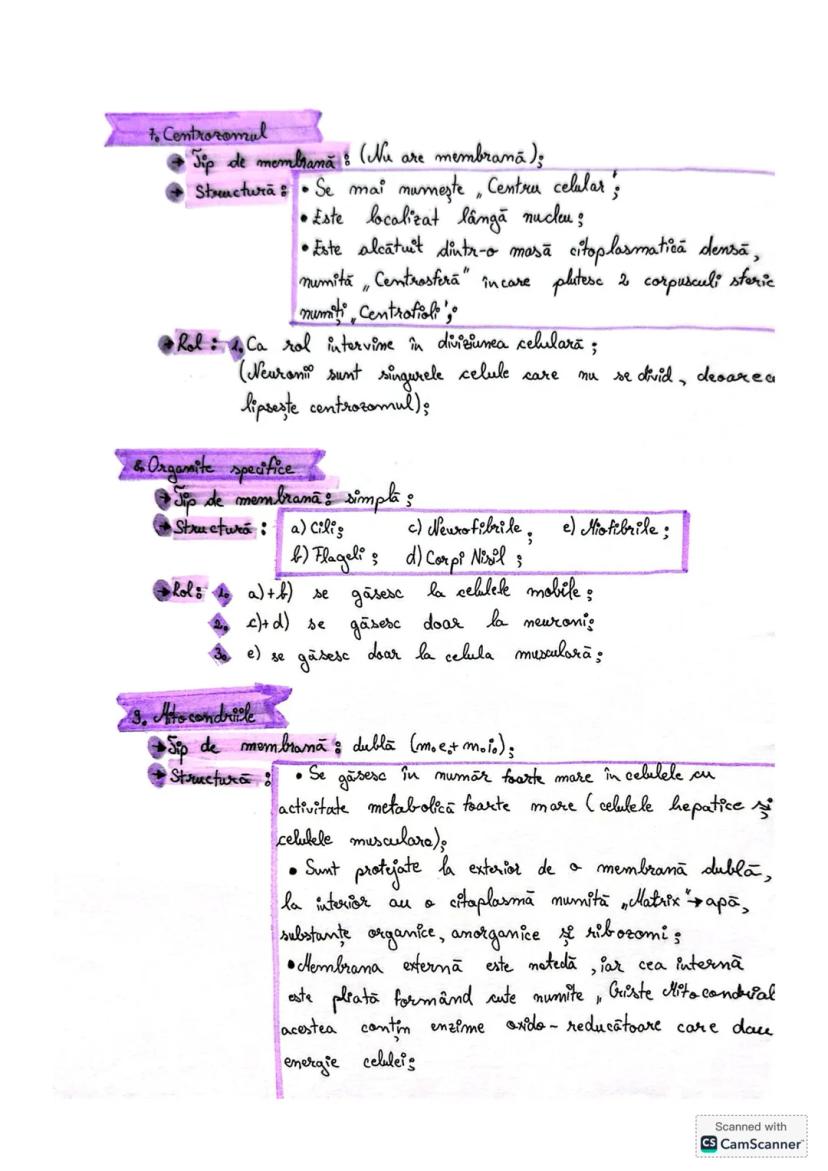 7. Centrozomul
→ Tip de membrană: (Nu are membrană);
→ Structură: • Se mai numește „Centru celular";
• Este localizat lângă nucleu;
• Este alcătuit dintr-o masă citoplasmatică densă,
numită „Centrosferă" în care plutesc 2 corpusculi sferic
numiți „Centrofioli";
→ Rol: 1. Ca rol intervine în diviziunea celulară;
(Neuronii sunt singurele celule care nu se divid, deoarea
lipsește centrozomul);
8. Organite specifice
→ Tip de membrană: simplă;
→ Structură: a) Cili; c) Neurofibrile; e) Miofibrile;
b) Flageli; d) Corpi Nissl;
→ Rol: 1. a)+b) se găsesc la celulele mobile;
2. c)+d) se găsesc doar la neuroni;
3. e) se găsesc doar la celula musculară;
9. Mitocondriile
→ Tip de membrană: dublă (m.e.+ m.i.);
→ Structură: • Se găsesc în număr foarte mare în celulele cu
activitate metabolică foarte mare (celulele hepatice și
celulele musculare);
• Sunt protejate la exterior de o membrană dublă,
la interior au o citoplasmă numită „Matrix" → apă,
substanțe organice, anorganice și ribozomi;
• Membrana externă este netedă, iar cea internă
este pliată formând cute numite „Criste Mitocondrial
acestea conțin enzime oxido-reducătoare care dau
energie celulei;
Scanned with
CS CamScanner